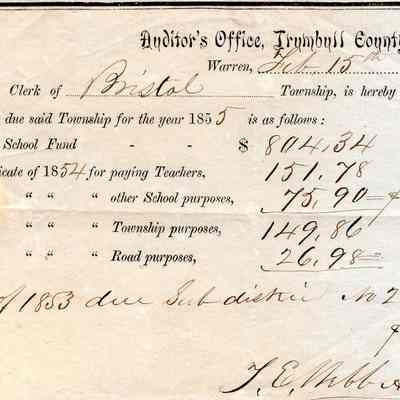 Auditor's Office, Trumbull County
Warren, Feb 15th
Clerk of Bristol Township, is hereby
due said Township for the year 1855 is as follows:
School Fund - - $ 804,34
icate of 1854 for paying Teachers, 151,78
" " " other School purposes, 75,90
" " " Township purposes, 149,86
" " " Road purposes, 26,98
of 1853 due Sub district No 2
T. E. Webb A